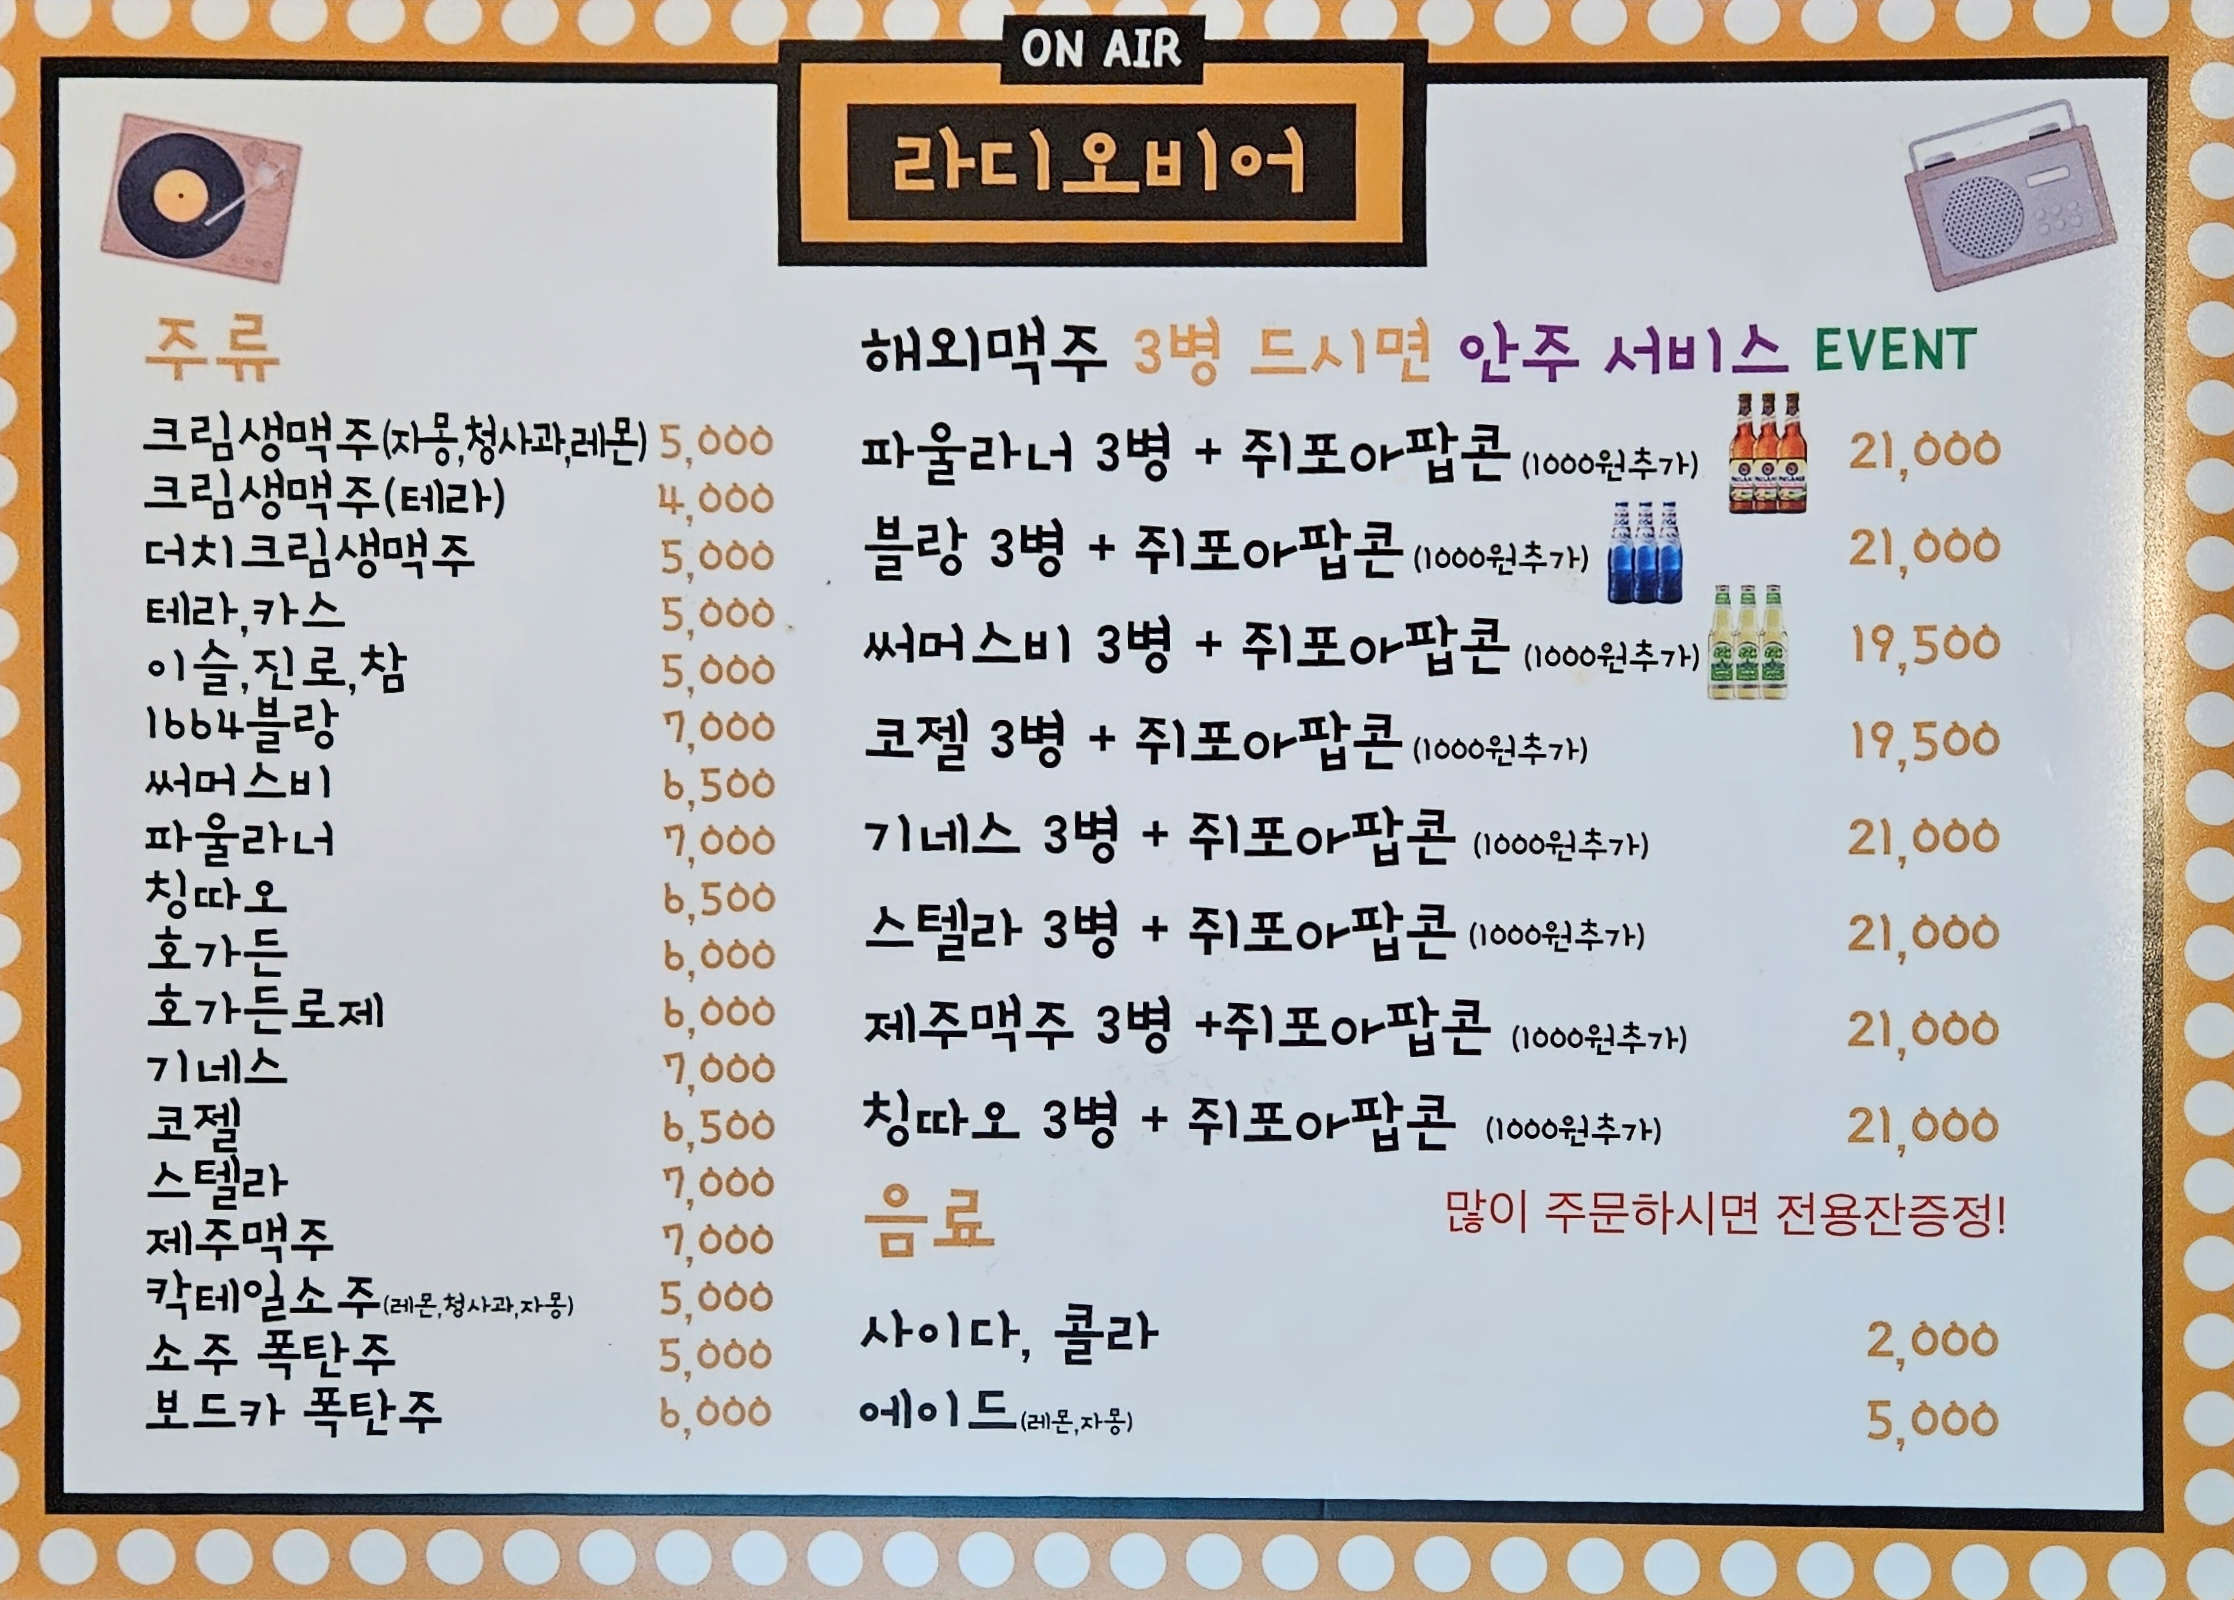 ON AIR
라디오비어
주류
크림생맥주(자몽,청사과,레몬) 5,000
크림생맥주(테라) 4,000
더치크림생맥주 5,000
테라,카스 5,000
이슬,진로,참 5,000
1664블랑 7,000
써머스비 6,500
파울라너 7,000
칭따오 6,500
호가든 6,000
호가든로제 6,000
기네스 7,000
코젤 6,500
스텔라 7,000
제주맥주 7,000
칵테일소주(레몬,청사과,자몽) 5,000
소주 폭탄주 5,000
보드카 폭탄주 6,000
해외맥주 3병 드시면 안주 서비스 EVENT
파울라너 3병 + 쥐포아팝콘 (1000원추가) 21,000
블랑 3병 + 쥐포아팝콘 (1000원추가) 21,000
써머스비 3병 + 쥐포아팝콘 (1000원추가) 19,500
코젤 3병 + 쥐포아팝콘 (1000원추가) 19,500
기네스 3병 + 쥐포아팝콘 (1000원추가) 21,000
스텔라 3병 + 쥐포아팝콘 (1000원추가) 21,000
제주맥주 3병 +쥐포아팝콘 (1000원추가) 21,000
칭따오 3병 + 쥐포아팝콘 (1000원추가) 21,000
음료
많이 주문하시면 전용잔증정!
사이다, 콜라 2,000
에이드(레몬,자몽) 5,000